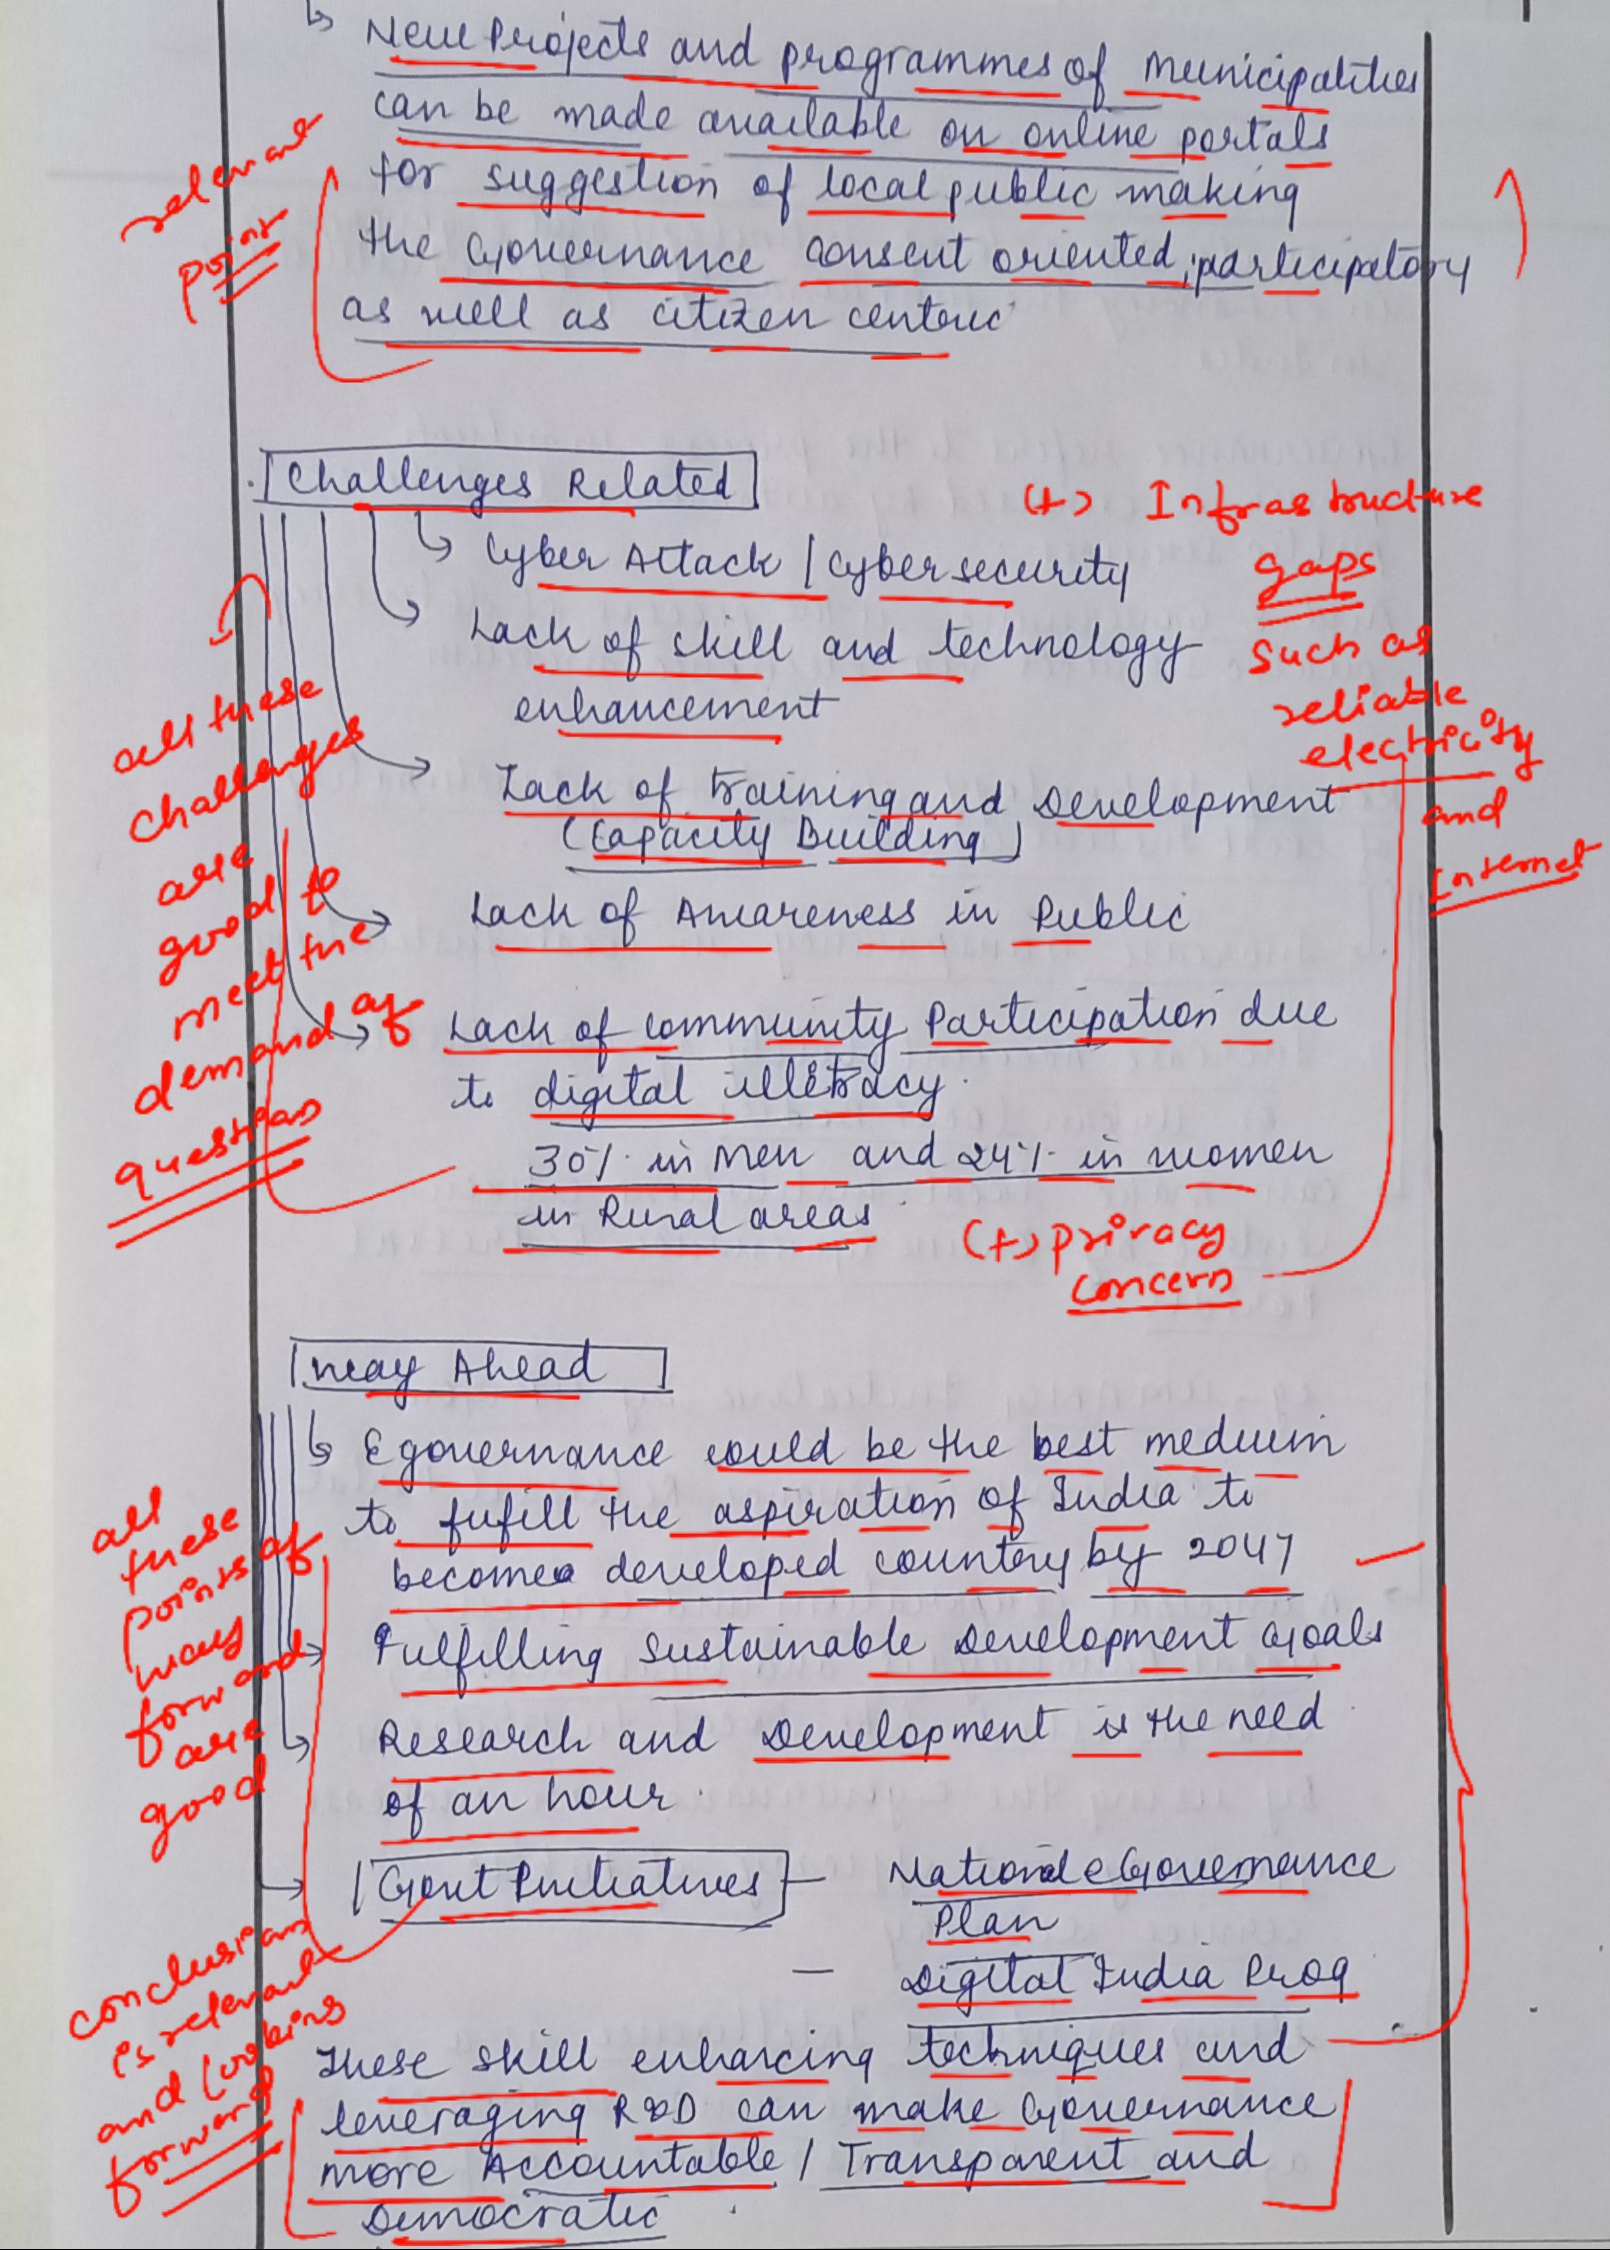 New Projects and programmes of Municipalities
can be made available on online portals
for suggestion of local public making
the Governance consent oriented, participatory
as well as citizen centric
relevant
point
Challenges Related
Cyber Attack / Cyber security
Lack of skill and technology
enhancement
Lack of training and Development
(Capacity Building)
Lack of Awareness in Public
Lack of community Participation due
to digital illetracy.
30% in Men and 24% in women
in Rural areas
(+) Infrastructure
gaps
such as
reliable
electricity
and
Internet
(+) privacy
concern
all these
challenges
are
good to
meet the
demand of
question
Way Ahead
Egovernance could be the best medium
to fufill the aspiration of India to
become a developed country by 2047
Fulfilling Sustainable Development Goals
Research and Development is the need
of an hour.
Govt Initiatives - National eGovernance
Plan
- Digital India Prog
These skill enhancing techniques and
leveraging R&D can make Governance
more Accountable / Transparent and
Democratic.
all
these
points of
way
forward
are
good
conclusion
is relevant
and looking
forward